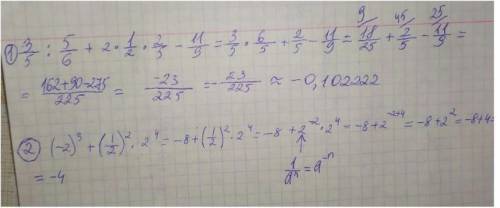 ① 3/5 : 5/6 + 2 · 1/2 · 2/5 - 11/9 = 3/5 · 6/5 + 2/5 - 11/9 = 9/ 18/25 + 45/ 2/5 - 25/ 11/9 =
= (162+90-275)/225 = -23/225 = -23/225 ≈ -0,102222
② (-2)³ + (1/2)² · 2⁴ = -8 + (1/2)² · 2⁴ = -8 + 2⁻² · 2⁴ = -8 + 2⁻²⁺⁴ = -8 + 2² = -8+4=
= -4
1/aⁿ = a⁻ⁿ